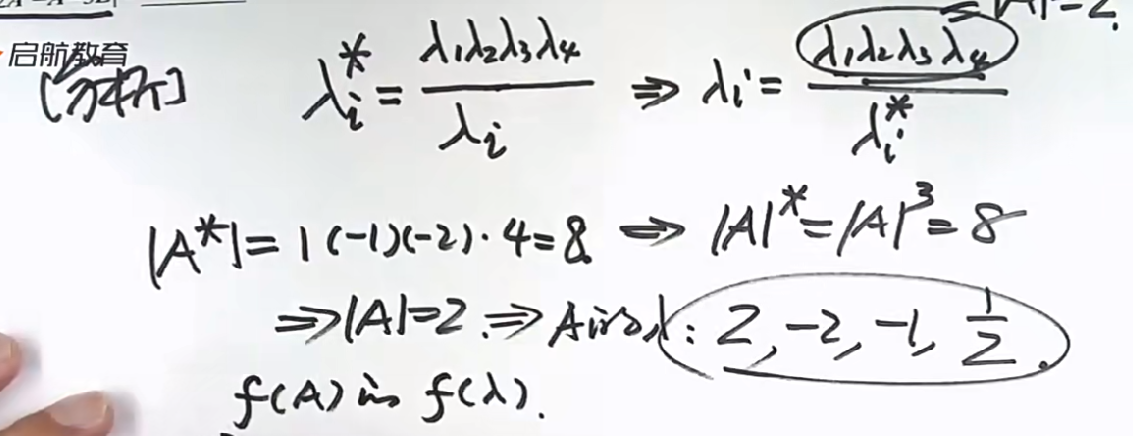 启航教育
[分析] λᵢ* = λ₁λ₂λ₃λ₄ / λᵢ ⇒ λᵢ = λ₁λ₂λ₃λ₄ / λᵢ*
|A*| = 1(-1)(-2)·4=8. ⇒ |A|* = |A|³ = 8
⇒ |A|=2. ⇒ A的λ: 2, -2, -1, 1/2.
f(A)的 f(λ).